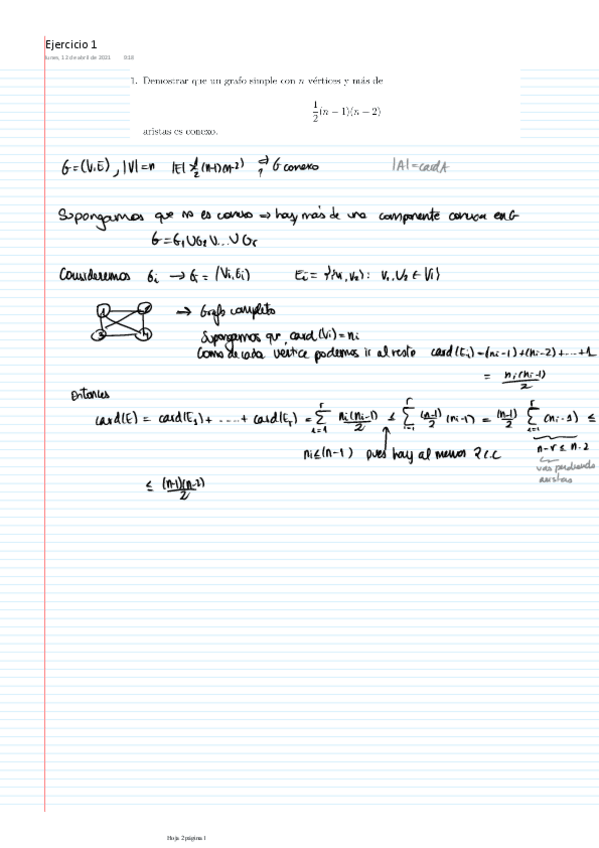 Ejercicio 1
lunes, 12 de abril de 2021
1. Demostrar que un grafo simple con n vértices y más de
1/2 (n − 1)(n − 2)
aristas es conexo.
G=(V,E), |V|=n |E|>1/2(n-1)(n-2) ⇒ G conexo |A|=card A
Supongamos que no es conexo ⇒ hay más de una componente conexa en G
G=G₁∪G₂∪...∪Gᵣ
Consideremos Gᵢ → Gᵢ=(Vᵢ,Eᵢ) Eᵢ={(v₁,v₂): v₁,v₂ ∈ Vᵢ}
1 2 → Grafo completo
3 4 Supongamos que card(Vᵢ)=nᵢ
Como de cada vértice podemos ir al resto card(Eᵢ)=(nᵢ-1)+(nᵢ-2)+...+1
= nᵢ(nᵢ-1)/2
Entonces
card(E) = card(E₁)+ .... + card(Eᵣ) = Σᵢ₌₁ʳ nᵢ(nᵢ-1)/2 ≤ Σᵢ₌₁ʳ (n-1)/2 (nᵢ-1) = (n-1)/2 Σᵢ₌₁ʳ (nᵢ-1) ≤
nᵢ≤(n-1) pues hay al menos 2 c.c n-r ≤ n-2
vas perdiendo
aristas
≤ (n-1)(n-2)/2
Hoja 2 página 1